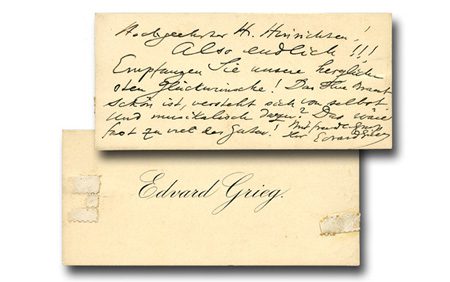 Hochgeehrter Hr. Hinrichsen!
Also endlich!!!
Empfangen Sie unsere herzlich-
sten Glückwünsche! Das Ihre Braut
schön ist, versteht sich von selbst.
Und musikalisch dazu? Das wäre
fast zu viel des Guten! Mit freundl. Gruss
Ihr Edvard Grieg
Edvard Grieg.